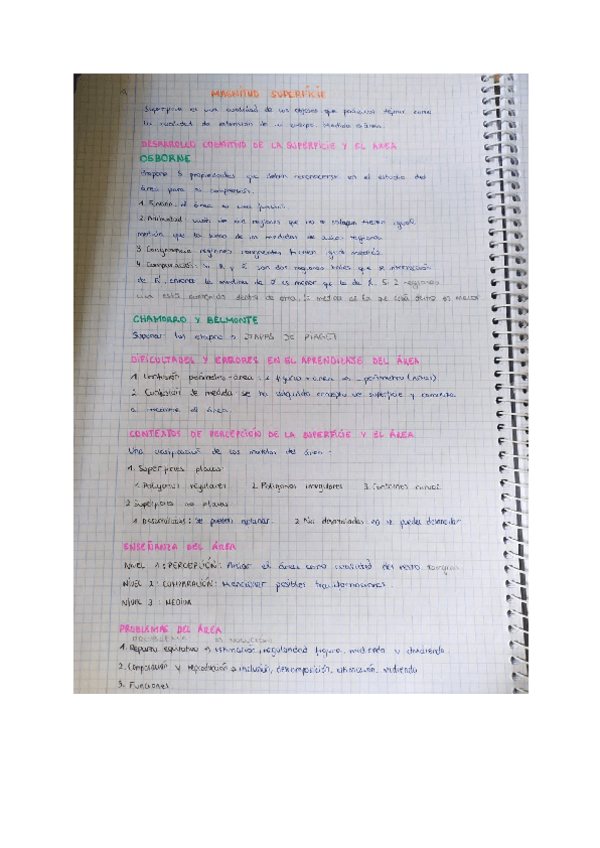 MAGNITUD SUPERFICIE
Superficie es una cualidad de los objetos que podemos definir como
la cualidad de extensión de un cuerpo. Medida = área.
DESARROLLO COGNITIVO DE LA SUPERFICIE Y EL ÁREA
OSBORNE
Propone 5 propiedades que deben reconocerse en el estudio del
área para su comprensión.
1. Función: el área es una función.
2. Aditividad: unión de dos regiones que no se solapan tienen igual
medida que la suma de las medidas de regiones
3. Congruencia: regiones congruentes tienen igual medida.
4. Comparación: si R y son dos regiones tales que
entonces la medida de es menor que la de 2 regiones
una está contenida dentro de otra, la medida de la que está dentro es menor
CHAMORRO Y BELMONTE
Superar las etapas ETAPAS DE PIAGET
DIFICULTADES Y ERRORES EN EL APRENDIZAJE DEL ÁREA
1. Confusión perímetro-área: área perímetro
2. de medida: se ha adquirido concepto de superficie y comienza
a el área.
CONTEXTOS DE PERCEPCIÓN DE LA SUPERFICIE Y EL ÁREA
Una clasificación de los modelos del área:
1. Superficies planas:
1. Polígonos regulares 2. Polígonos irregulares 3. Contornos curvos.
2. Superficies no planas
1. Desarrollables: se pueden aplanar. 2. No desarrollables: no se pueden desarrollar
ENSEÑANZA DEL ÁREA
NIVEL 1: PERCEPCIÓN: Aislar el área como cualidad del resto.
NIVEL 2: COMPARACIÓN: Mencionar posibles transformaciones.
NIVEL 3: MEDIDA
PROBLEMAS DEL ÁREA
1. Reparto equitativo → estimación, regularidad figura, midiendo y dividiendo.
2. Comparación y reproducción → inclusión, descomposición, estimación, midiendo
3. Funciones.